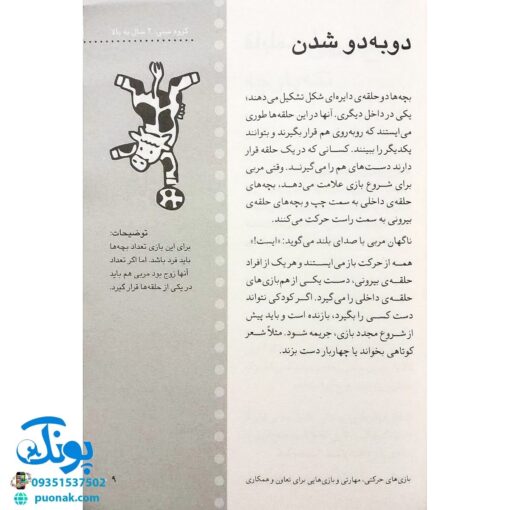 دوبه‌دو شدن
بچه‌ها دو حلقه‌ی دایره‌ای شکل تشکیل می‌دهند؛
یکی در داخل دیگری. آنها در این حلقه‌ها طوری
می‌ایستند که روبه‌روی هم قرار بگیرند و بتوانند
یکدیگر را ببینند. کسانی که در یک حلقه قرار
دارند دست‌های هم را می‌گیرند. وقتی مربی
برای شروع بازی علامت می‌دهد، بچه‌های
حلقه‌ی داخلی به سمت چپ و بچه‌های حلقه‌ی
بیرونی به سمت راست حرکت می‌کنند.
ناگهان مربی با صدای بلند می‌گوید: «ایست!»
همه از حرکت باز می‌ایستند و هر یک از افراد
حلقه‌ی بیرونی، دست یکی از هم‌بازی‌های
حلقه‌ی داخلی را می‌گیرد. اگر کودکی نتواند
دست کسی را بگیرد، بازنده است و باید پیش
از شروع مجدد بازی، جریمه شود. مثلاً شعر
کوتاهی بخواند یا چهاربار دست بزند.
بازی‌های حرکتی، مهارتی و بازی‌هایی برای تعاون و همکاری
گروه سنی: ۴ سال به بالا
توضیحات:
برای این بازی تعداد بچه‌ها
باید فرد باشد. اما اگر تعداد
آنها زوج بود مربی هم باید
در یکی از حلقه‌ها قرار گیرد.
۹
پونک
09351537502
puonak.com